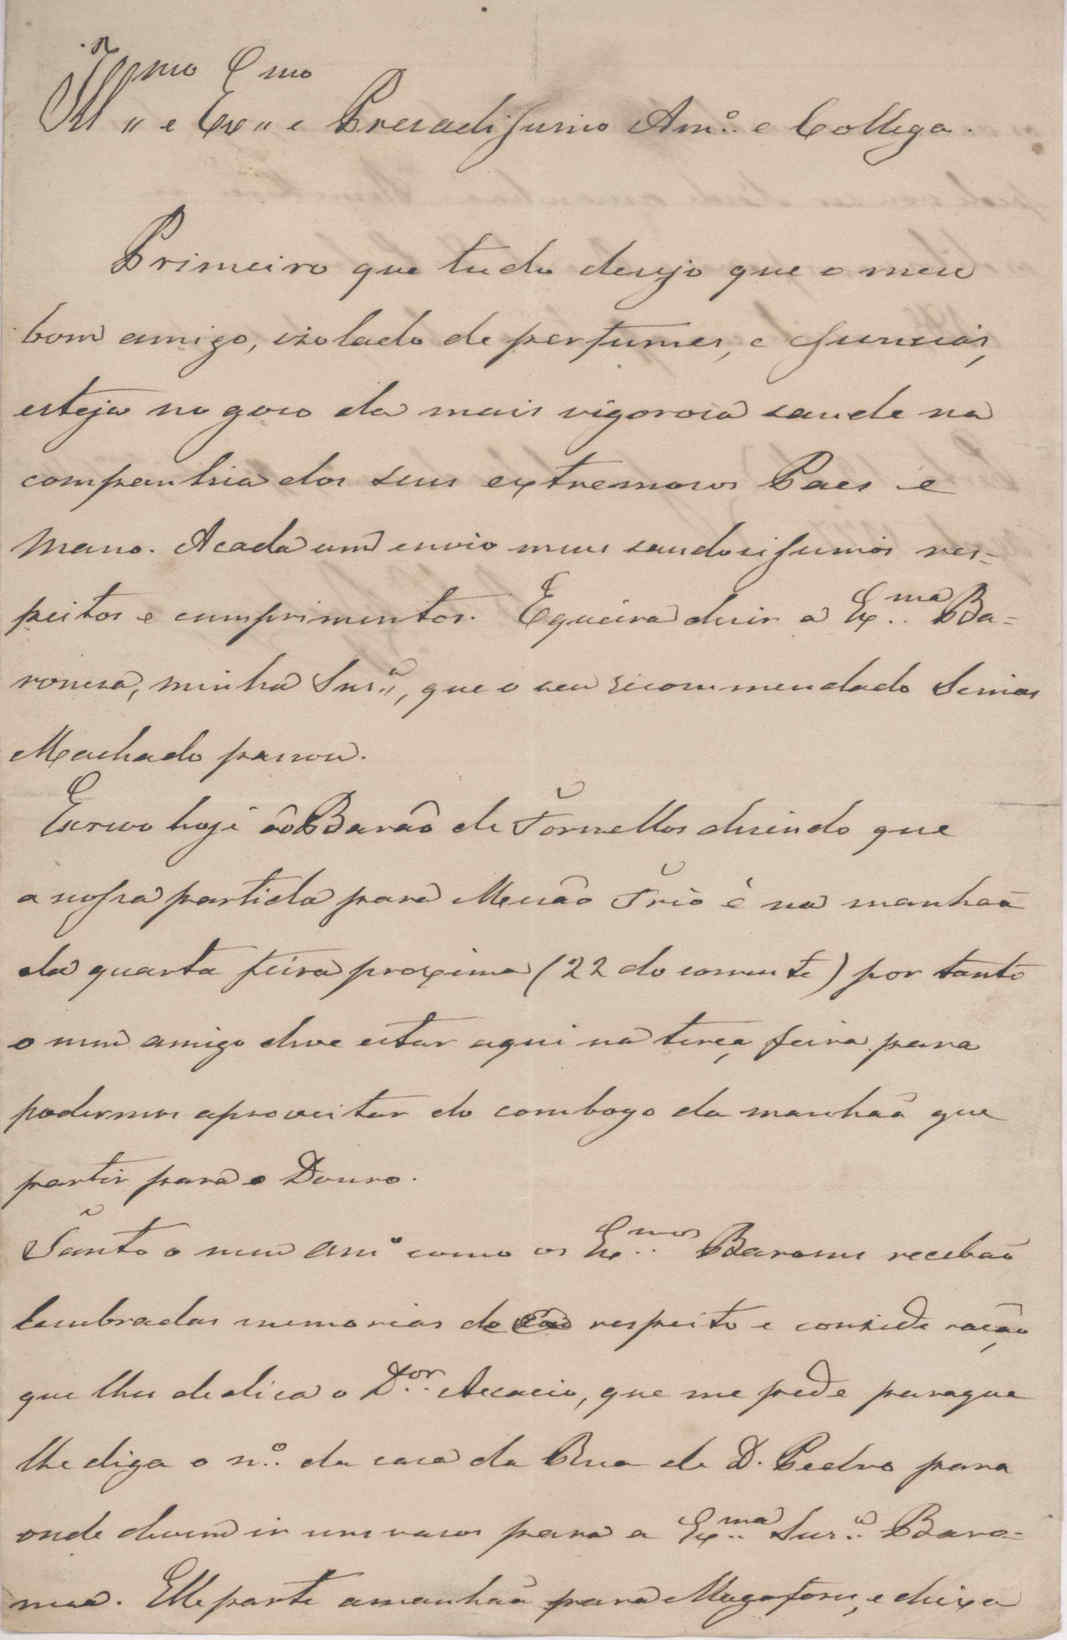 Ill.mo e Ex.mo e Presadissimo Am.º e Collega.
Primeiro que tudo desejo que o meu
bom amigo, izolado de perfumes, e
esteja no goso da mais vigorosa saude na
companhia dos seus extremosos Paes e
Mano. Acada um envio meus saudosissimos res-
peitos e cumprimentos. E queira dizer a Ex.ma Ba-
roneza, minha Snr.ª, que o seu recommendado Simias
Machado passou.
Escrevo hoje ao Barão de Fornellos dizendo que
a nossa partida para Mesão Frio é na manhaã
da quarta feira proxima (22 do corrente) por tanto
o meu amigo deve estar aqui na terça feira para
podermos aproveitar do comboyo da manhaã que
partir para o Douro.
Tanto o meu am.º como os Ex.mos Barones recebão
lembradas memorias do respeito e consideração
que lhes dedica o D.or Acacio, que me pede paraque
lhe diga o n.º da casa da Rua de D. Pedro para
onde devem ir uns vasos para a Ex.ma Snr.ª Baro-
neza. Elle parte amanhaã para Mogofores, e deixa